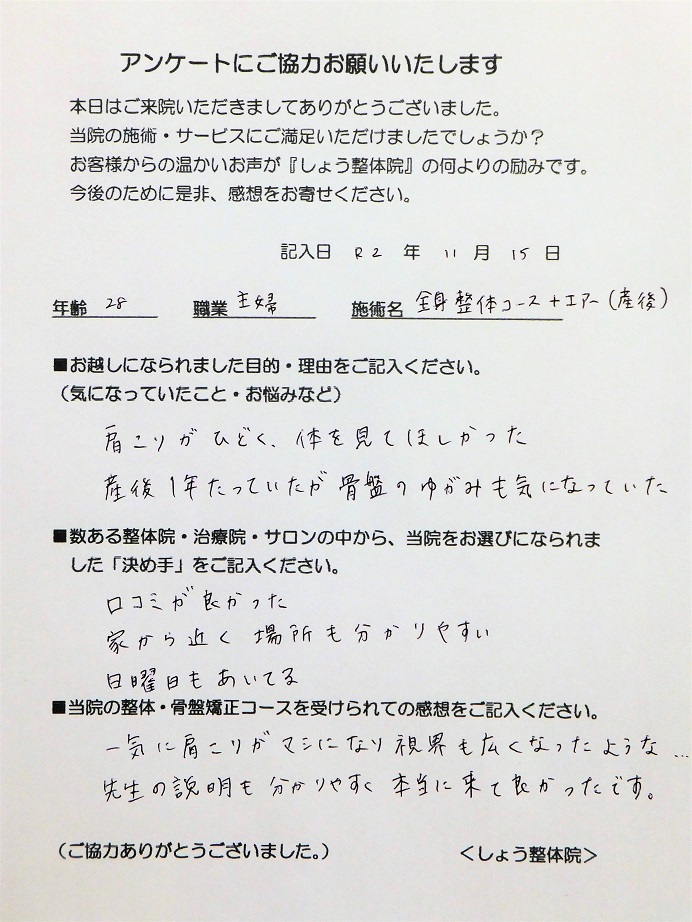 アンケートにご協力お願いいたします
本日はご来院いただきましてありがとうございました。
当院の施術・サービスにご満足いただけましたでしょうか？
お客様からの温かいお声が『しょう整体院』の何よりの励みです。
今後のために是非、感想をお寄せください。
記入日 R2 年 11 月 15 日
年齢 28 職業 主婦 施術名 全身整体コース＋エアー(産後)
■お越しになられました目的・理由をご記入ください。
（気になっていたこと・お悩みなど）
肩こりがひどく、体を見てほしかった
産後1年たっていたが骨盤のゆがみも気になっていた
■数ある整体院・治療院・サロンの中から、当院をお選びになられま
した「決め手」をご記入ください。
口コミが良かった
家から近く場所も分かりやすい
日曜日もあいてる
■当院の整体・骨盤矯正コースを受けられての感想をご記入ください。
一気に肩こりがマシになり視界も広くなったような…
先生の説明も分かりやすく本当に来て良かったです。
（ご協力ありがとうございました。） ＜しょう整体院＞